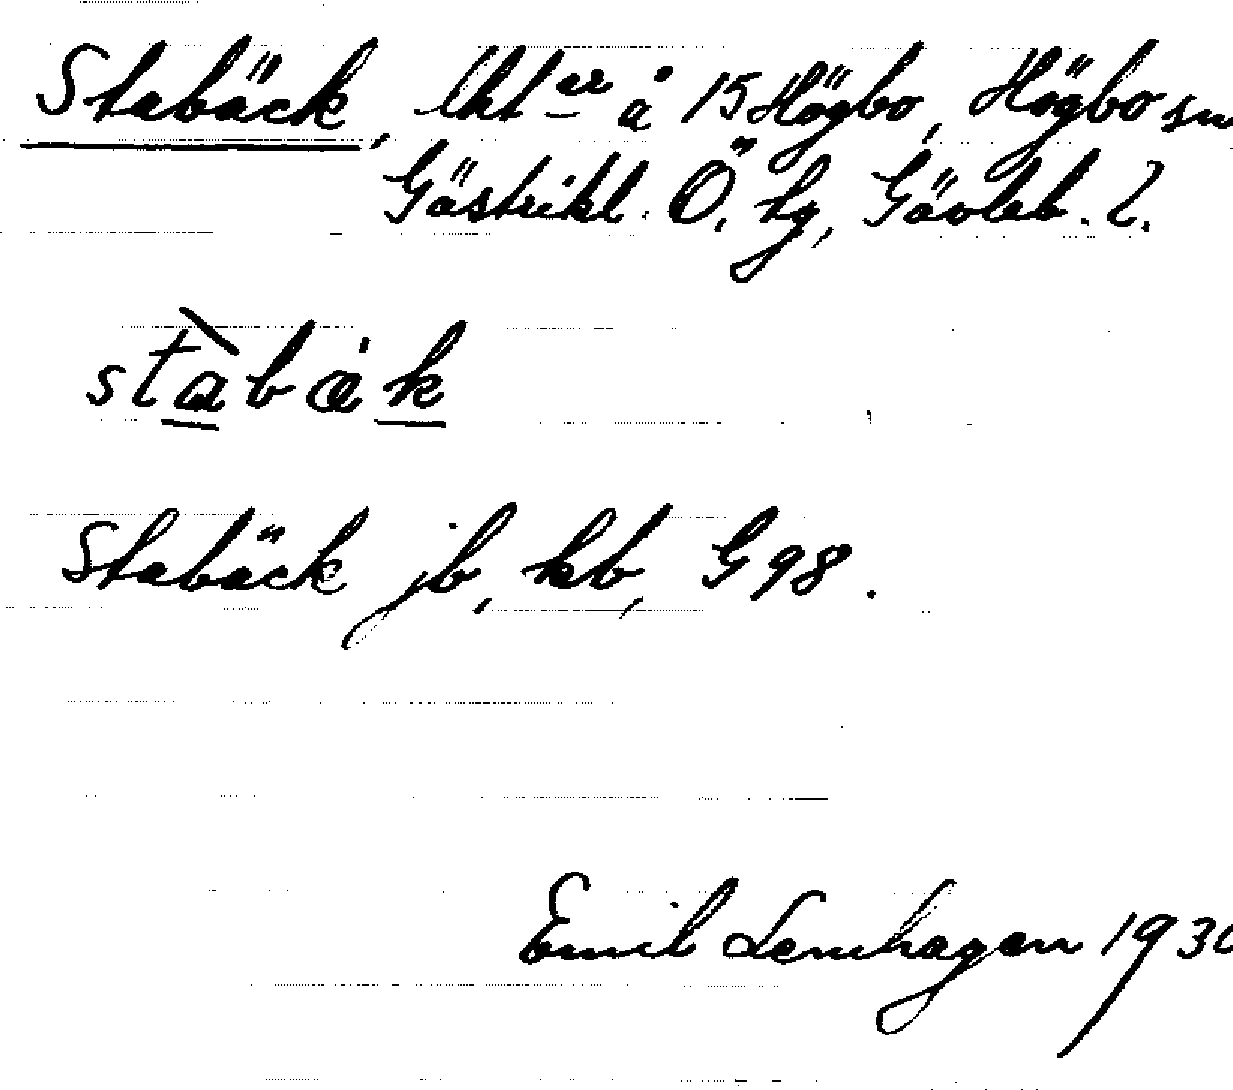 Stabäck, lht er å 15 Högbo, Högbo sn
Gästrikl. Ö. tg, Gävleb. l.
stàbäk
Stabäck jb, kb, G 98.
Emil Lenhagen 1930